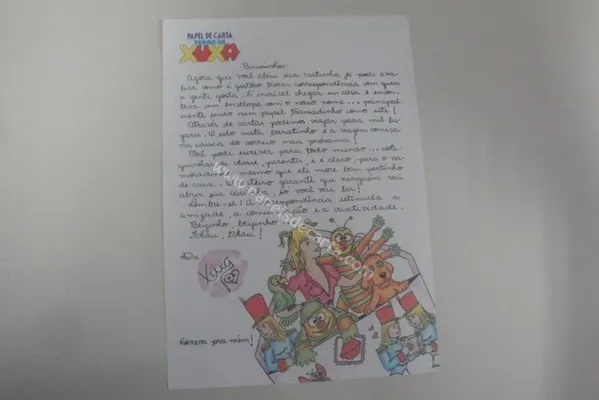 PAPEL DE CARTA
TURMA DA
XUXA
Baixinhos:
Agora que você abriu sua cartinha já pode ava-
liar como é gostoso trocar correspondência com quem
a gente gosta. É incrível chegar em casa e encon-
trar um envelope com o nosso nome... principal-
mente sendo num papel transadinho como este!
Através de cartas podemos viajar para mil lu-
gares. O selo custa baratinho e a viagem começa
na caixa do correio mais próxima!
Você pode escrever para todo mundo... cole-
guinhas de classe, parentes, e é claro, para o na-
moradinho, mesmo que ele more bem pertinho
de casa. O carteiro garante que ninguém vai
abrir sua cartinha, só você vai ler!
Lembre-se: A correspondência estimula a
amizade, a comunicação e a criatividade.
Beijinho, beijinho
Tchau, tchau!
Da
Xuxa
Escreva pra mim!
www.papeisdecarta.com